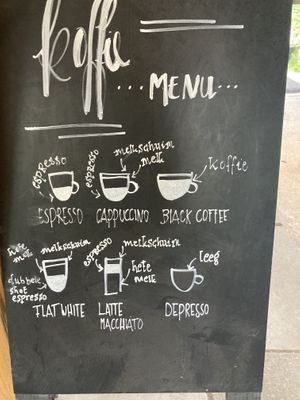 koffie
...MENU...
espresso
espresso
melkschuim
melk
koffie
ESPRESSO
CAPPUCCINO
BLACK COFFEE
hete
melk
melkschuim
dubbele
shot
espresso
espresso
melkschuim
hete
melk
leeg
FLAT WHITE
LATTE
MACCHIATO
DEPRESSO